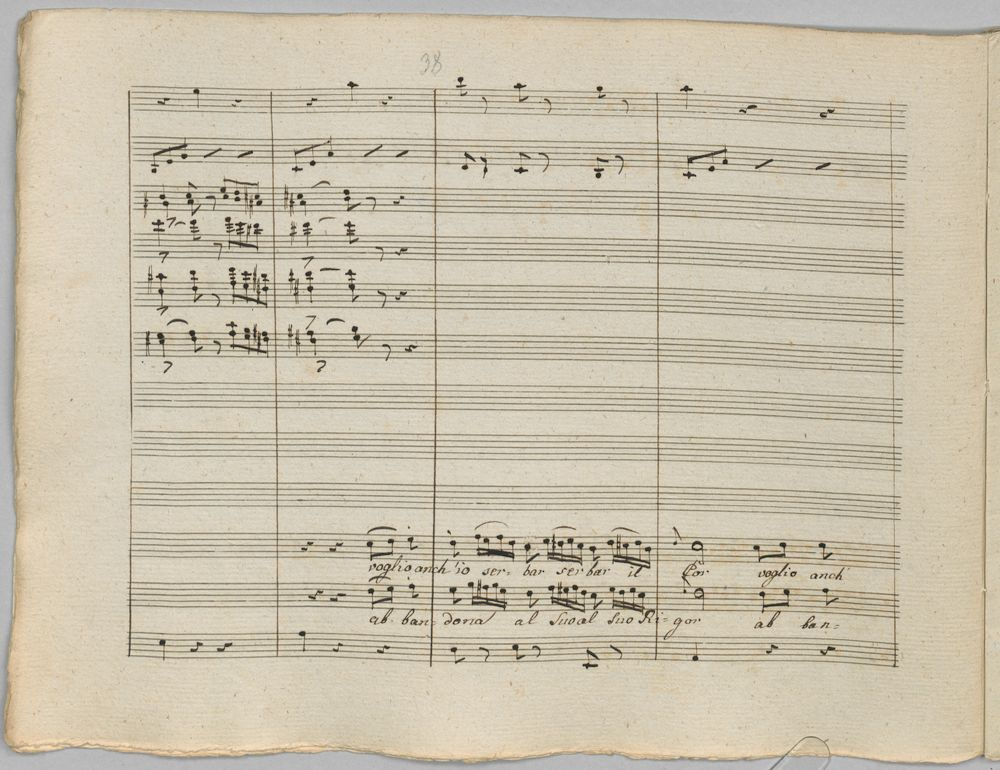 38
voglio anch'io ser- bar ser bar il Cor voglio anch'
ab- ban= dona al suo al suo Ri= gor ab ban=